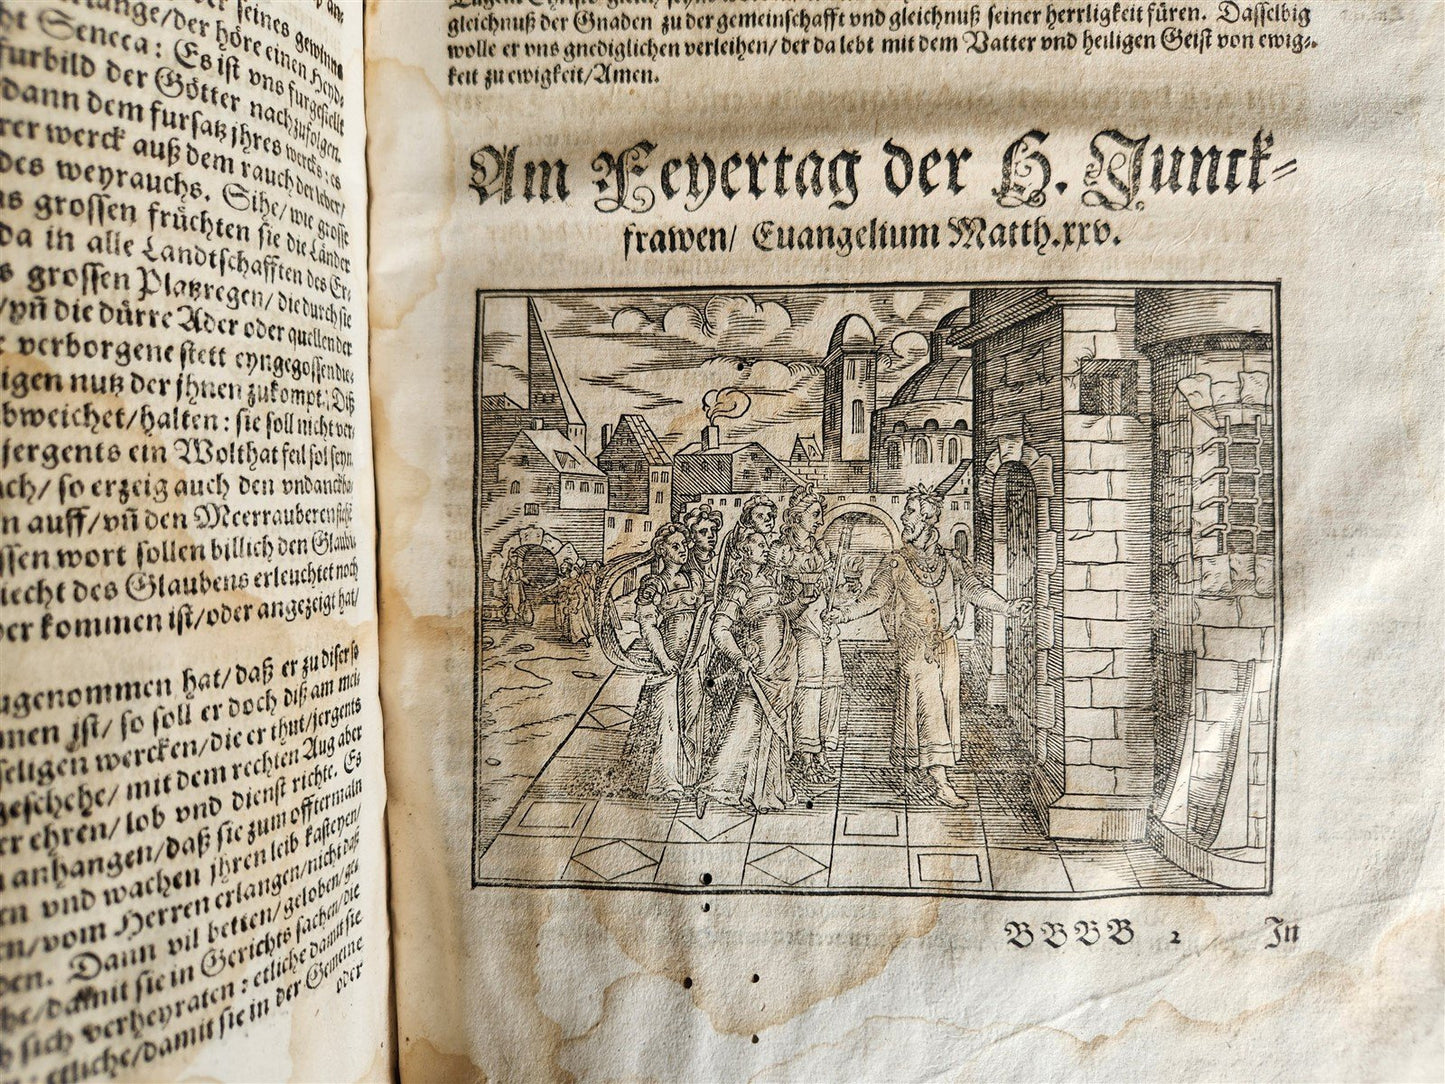 seines gewinns
der höre einen Heyd-
Seneca: Es ist vns furgestellt
furbild der Götter nachzufolgen.
dann dem fursatz jhres wercks: es
werck auß dem rauch der
des weyrauchs. Sihe/ wie grosse
grossen früchten sie die Länder
da in alle Landtschafften des Er-
grossen Platzregen/ die durch sie
/vñ die dürre Ader oder quellen der
verborgene stett eyngegossen die-
nutz der jhnen zukompt. Diß
halten: sie soll nicht ver-
jergents ein Wolthat feil sol seyn.
so erzeig auch den vndanckba-
auff/ vñ den Meerrauberen
wort sollen billich den
des Glaubens erleuchtet noch
kommen ist/ oder angezeigt hat/
hat/ daß er zu diser so
jst/ so soll er doch diß am mei-
wercken/ die er thut/ jergents
geschehe/ mit dem rechten Aug aber
ehren/ lob vnd dienst richte. Es
anhangen/ daß sie zum offtermaln
vnd wachen jhren leib kasteyen/
vom Herren erlangen/ nicht daß
Dann vil betten/ geloben/
damit sie in Gerichts sachen/ die
sich verheyraten: etliche damit sie
etliche/ damit sie in der Gemeine
oder
gleichnuß der Gnaden zu der gemeinschafft vnd gleichnuß seiner herrligkeit füren. Dasselbig
wolle er vns gnediglichen verleihen/ der da lebt mit dem Vatter vnd heiligen Geist von ewig-
keit zu ewigkeit/ Amen.
Am Feyertag der H. Junck-
frawen/ Euangelium Matth. xxv.
BBBB 2 In